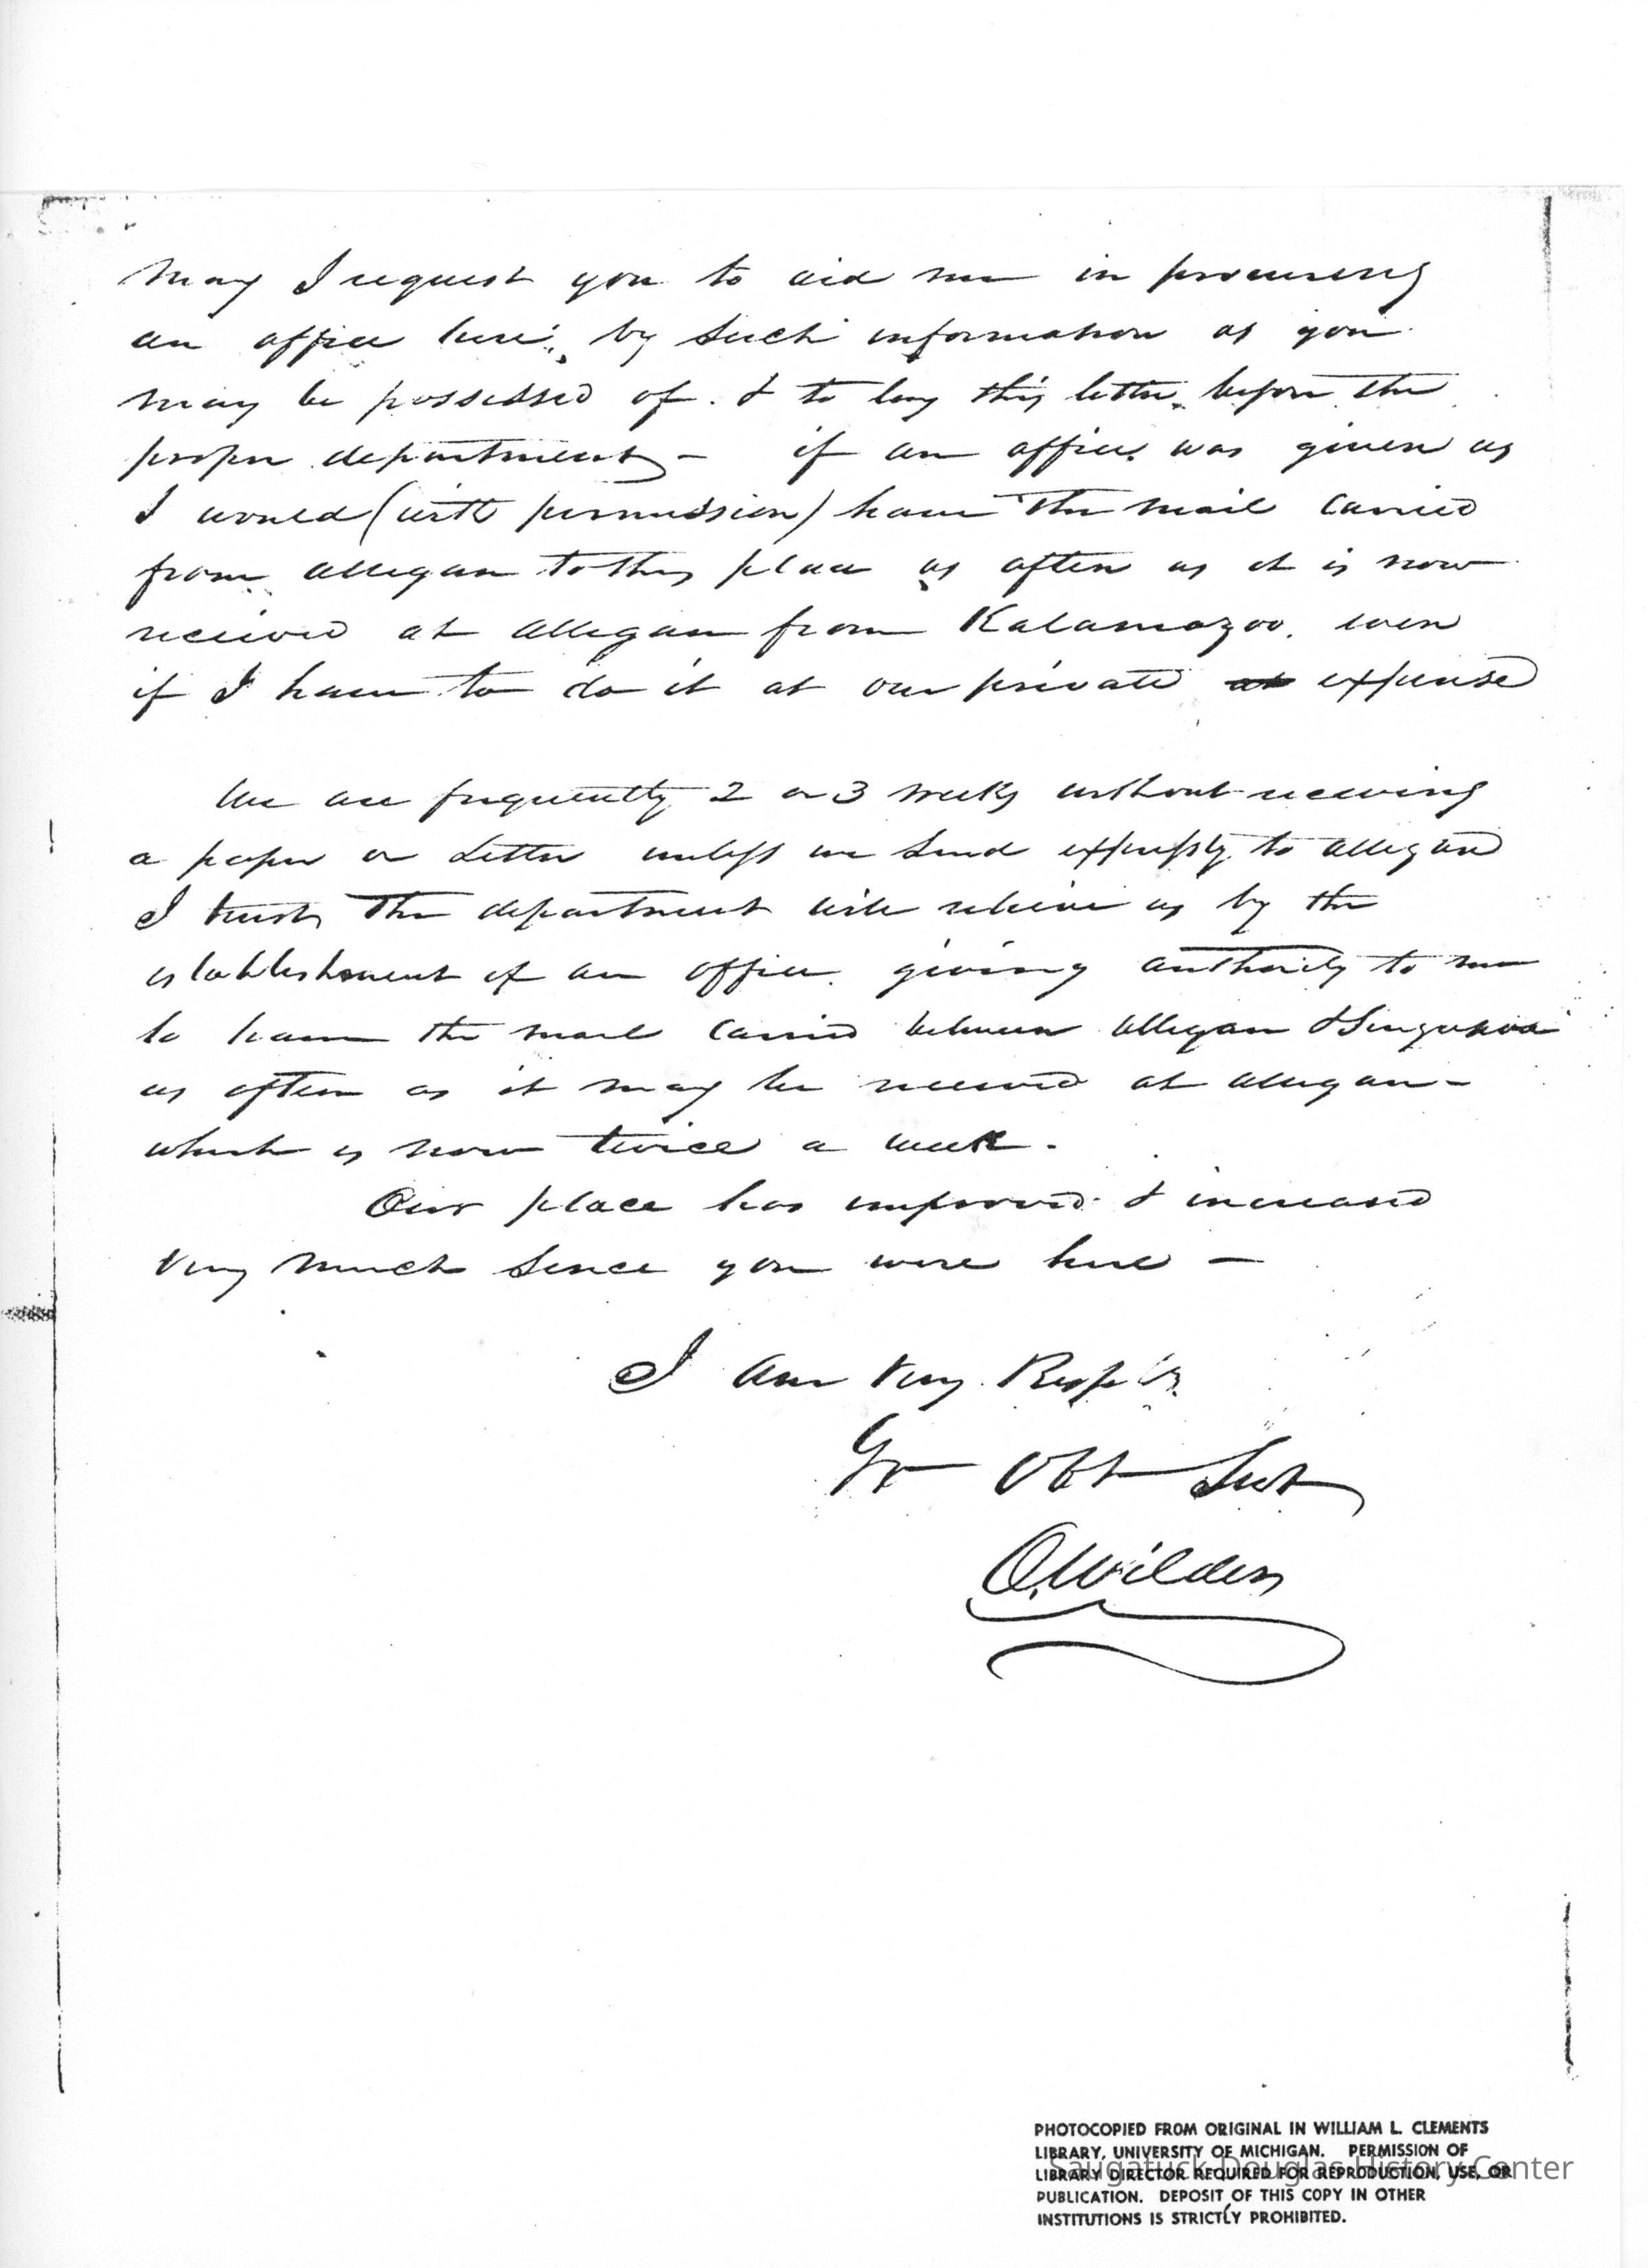 May I request you to aid me in procuring
an office here, by such information as you
may be possessed of. & to lay this letter before the
proper department - if an office was given us
I would (with permission) have the mail carried
from Allegan to this place as often as it is now
received at Allegan from Kalamazoo. even
if I have to do it at our private at expense
We are frequently 2 or 3 weeks without receiving
a paper or Letter unless we send expressly to Allegan
I trust the department will relieve us by the
establishment of an office. giving authority to me
to have the mail carried between Allegan & Singapore
as often as it may be received at Allegan -
which is now twice a week.
Our place has improved & increased
very much since you were here -
I am Very Respty
Yr Obt Svt
O. Wilder
PHOTOCOPIED FROM ORIGINAL IN WILLIAM L. CLEMENTS
LIBRARY, UNIVERSITY OF MICHIGAN. PERMISSION OF
LIBRARY DIRECTOR REQUIRED FOR REPRODUCTION, USE, OR
Saugatuck-Douglas History Center
PUBLICATION. DEPOSIT OF THIS COPY IN OTHER
INSTITUTIONS IS STRICTLY PROHIBITED.